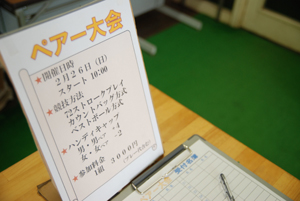 ペアー大会
★開催日時
2月26日(日)
スタート 10:00
★競技方法
72ストロークプレイ
カウントバッグ方式
ベストボール方式
★ハンディキャップ
男・男ペアー -4
男・女ペアー -2
★参加料金
1組 3000円
受付名簿